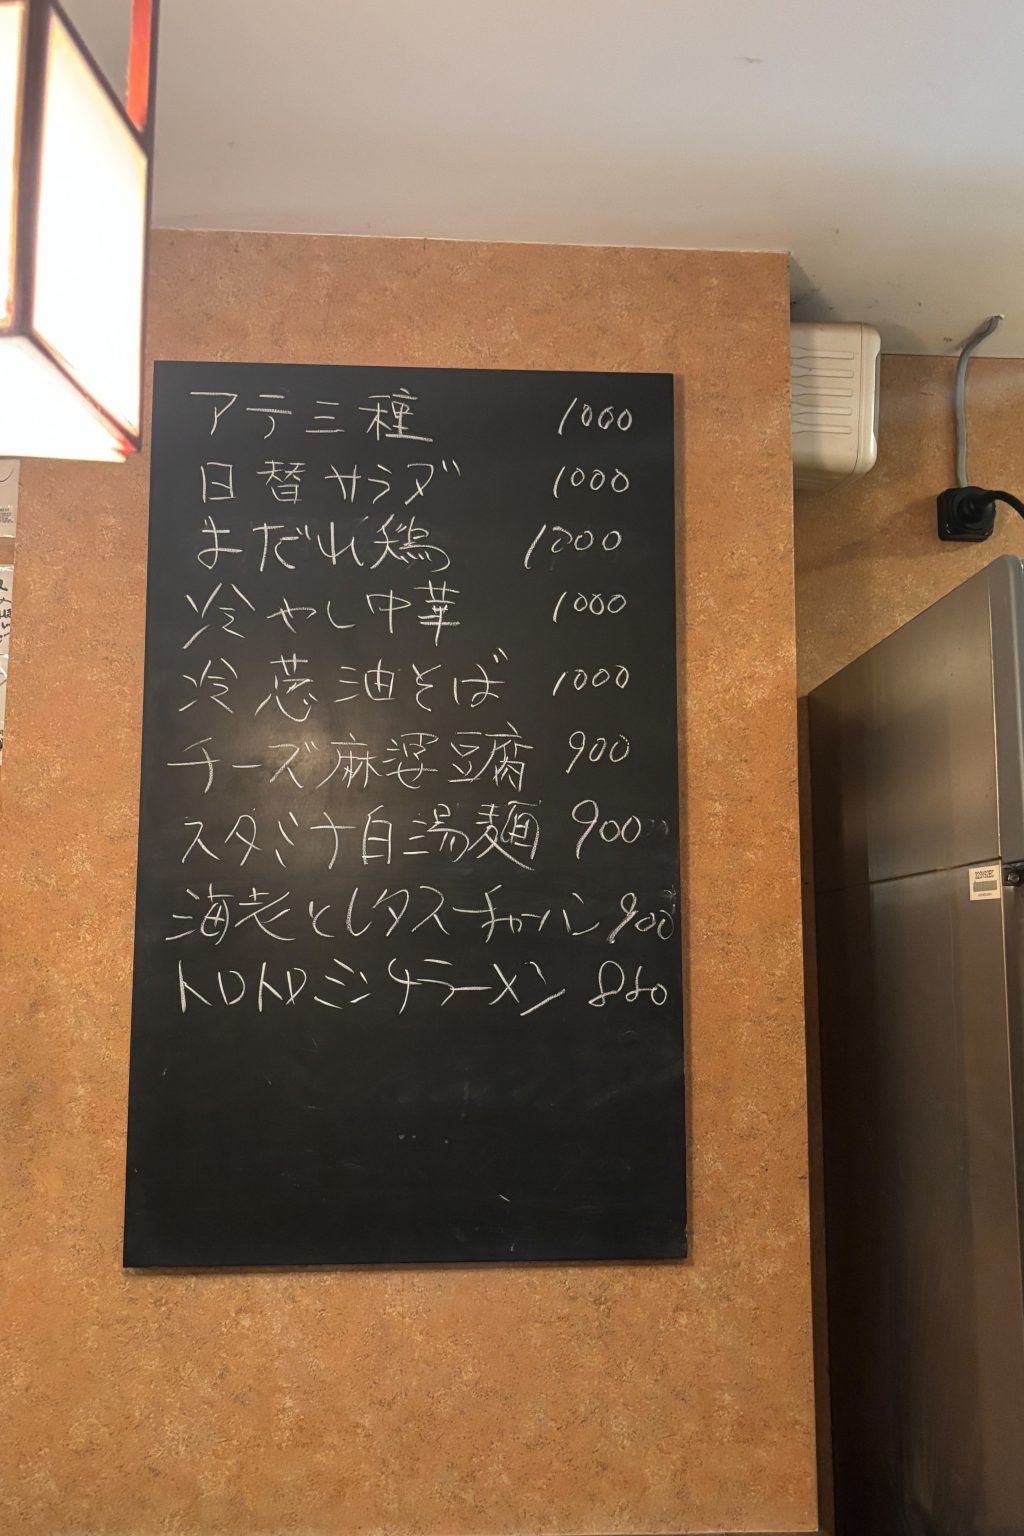 アテ三種 1000
日替サラダ 1000
まだれ鶏 1200
冷やし中華 1000
冷葱油そば 1000
チーズ麻婆豆腐 900
スタミナ白湯麺 900
海老とレタスチャーハン 900
トロトロミンチラーメン 860